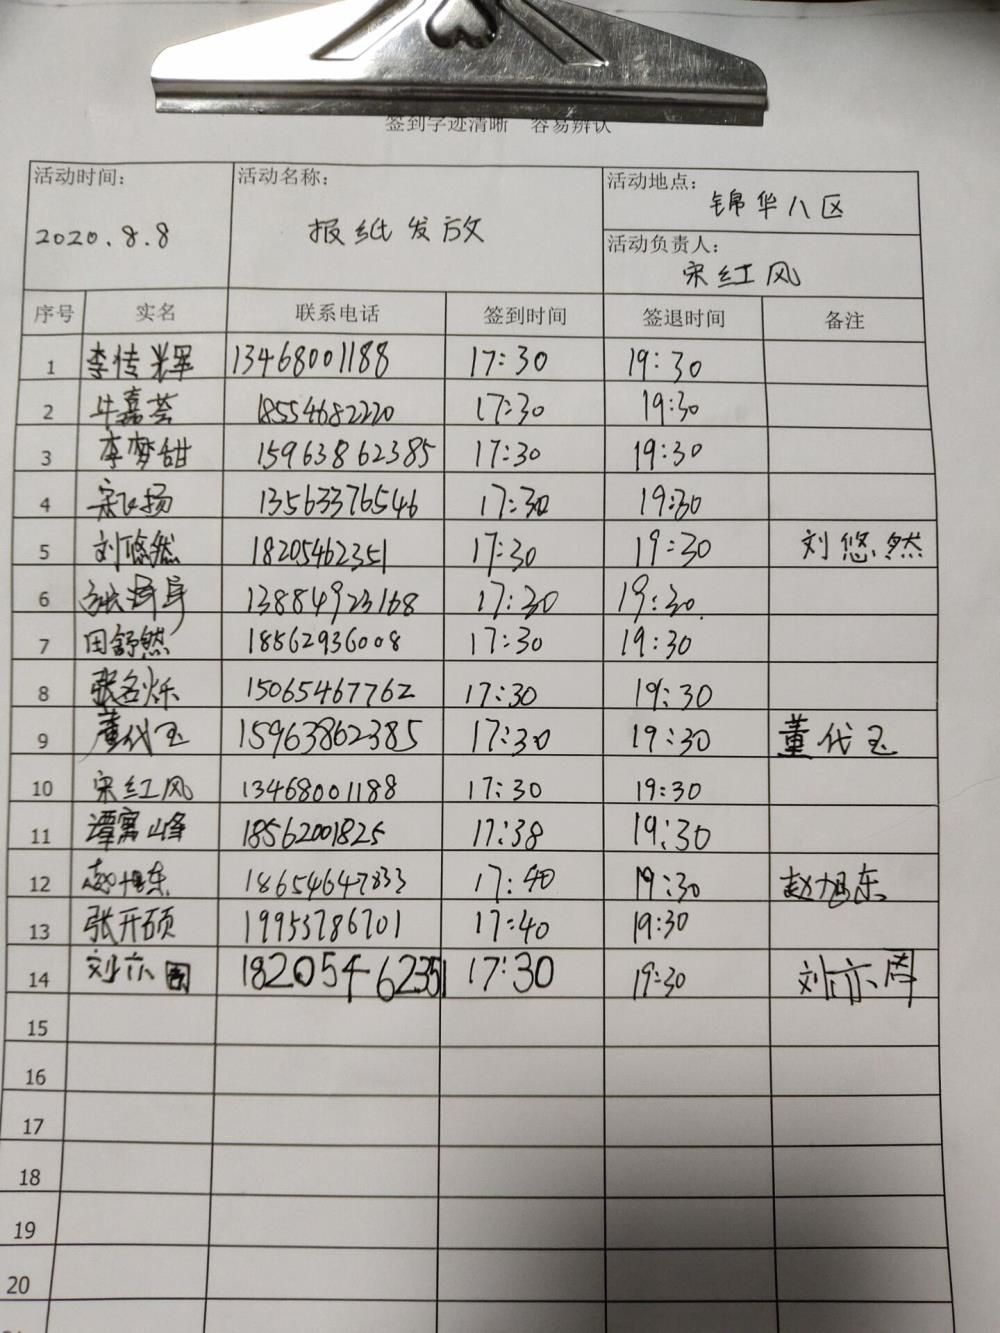 签到字迹清晰 容易辨认
活动时间: 活动名称: 活动地点:
2020.8.8 报纸发放 锦华八区
活动负责人:
宋红风
序号 实名 联系电话 签到时间 签退时间 备注
1 李传辉 13468001188 17:30 19:30
2 牛嘉荟 18554682220 17:30 19:30
3 李梦甜 15963862385 17:30 19:30
4 宋飞扬 13563376546 17:30 19:30
5 刘悠然 18205462351 17:30 19:30 刘悠然
6 张泽 13884923168 17:30 19:30
7 田舒然 18562936008 17:30 19:30
8 张名烁 15065467762 17:30 19:30
9 董代玉 15963862385 17:30 19:30 董代玉
10 宋红风 13468001188 17:30 19:30
11 谭富峰 18562001825 17:38 19:30
12 赵旭东 18654647833 17:40 19:30 赵旭东
13 张开硕 19953786701 17:40 19:30
14 刘亦周 18205462351 17:30 19:30 刘亦周
15
16
17
18
19
20